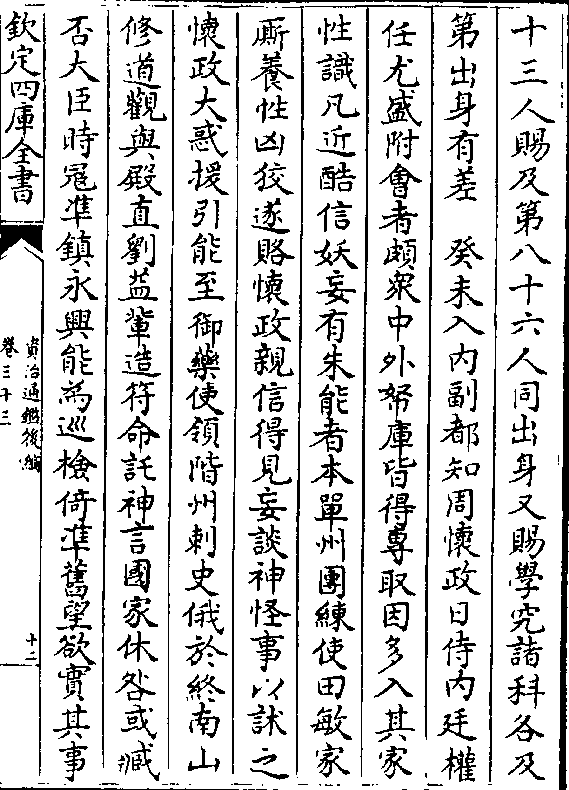 十三人賜及第八十六人同出身又賜學究諸科各及
第出身有差　癸未入內副都知周懷政日侍內廷權
任尤盛附會者頗衆中外帑庫皆得專取因多入其家
性識凡近酷信妖妄有朱能者本單州團練使田敏家
厮養性凶狡遂賂懷政親信得見妄談神怪事以訹之
懷政大惑援引能至御藥使領階州刺史俄於終南山
修道觀與殿直劉益輩造符命託神言國家休咎或臧
否大臣時冦準鎮永興能為巡檢倚準舊望欲實其事
欽定四庫全書
資治通鑑後編
卷三十三
十二